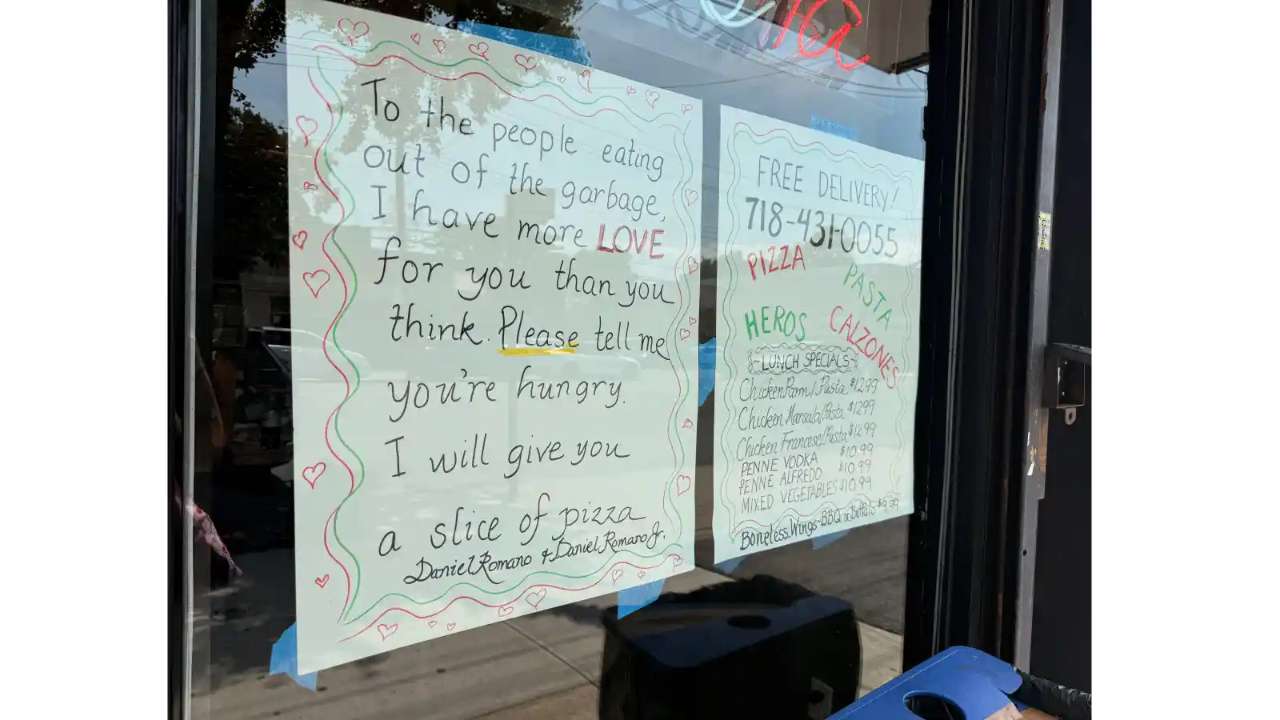 To the people eating
out of the garbage,
I have more LOVE
for you than you
think. Please tell me
you're hungry.
I will give you
a slice of pizza
Daniel Romano & Daniel Romano Jr.
FREE DELIVERY!
718-431-0055
PIZZA
PASTA
HEROS
CALZONES
LUNCH SPECIALS
Chicken Parm/Pasta $12.99
Chicken Marsala/Pasta $12.99
Chicken Francese/Pasta $12.99
PENNE VODKA $10.99
PENNE ALFREDO $10.99
MIXED VEGETABLES $10.99
Boneless Wings-BBQ or Buffalo $9.99